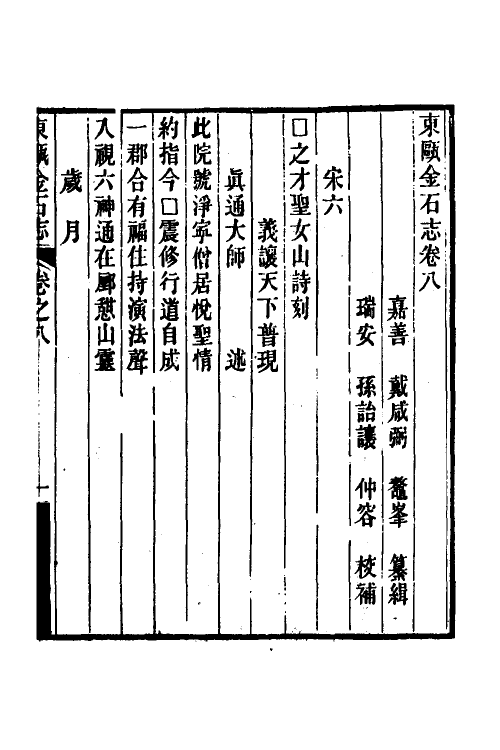 東甌金石志卷八
嘉善 戴咸弼 鼇峯 纂緝
瑞安 孫詒讓 仲容 校補
宋六
□之才聖女山詩刻
義讓天下普現
眞通大師 述
此院號淨寧僧居悅聖情
約指今□震修行道自成
一郡合有福住持演法聲
入視六神通在郿懇山靈
歲月
東甌金石志 卷之八 一